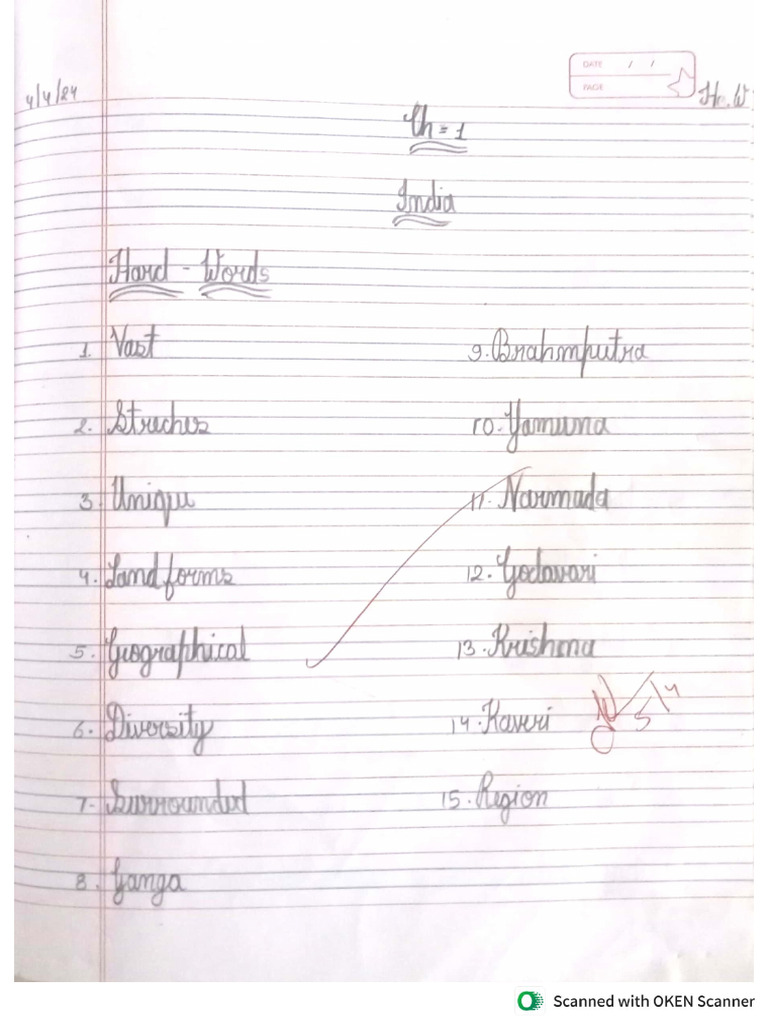 DATE / /
PAGE
4/4/24
H.W
Ch = 1
India
Hard - Words
1. Vast
2. Streches
3. Uniqu
4. Land forms
5. Geographical
6. Diversity
7. Surrounded
8. Ganga
9. Brahmputra
10. Yamuna
11. Narmada
12. Godavari
13. Krishna
14. Kaveri
15. Region
5/4
Scanned with OKEN Scanner